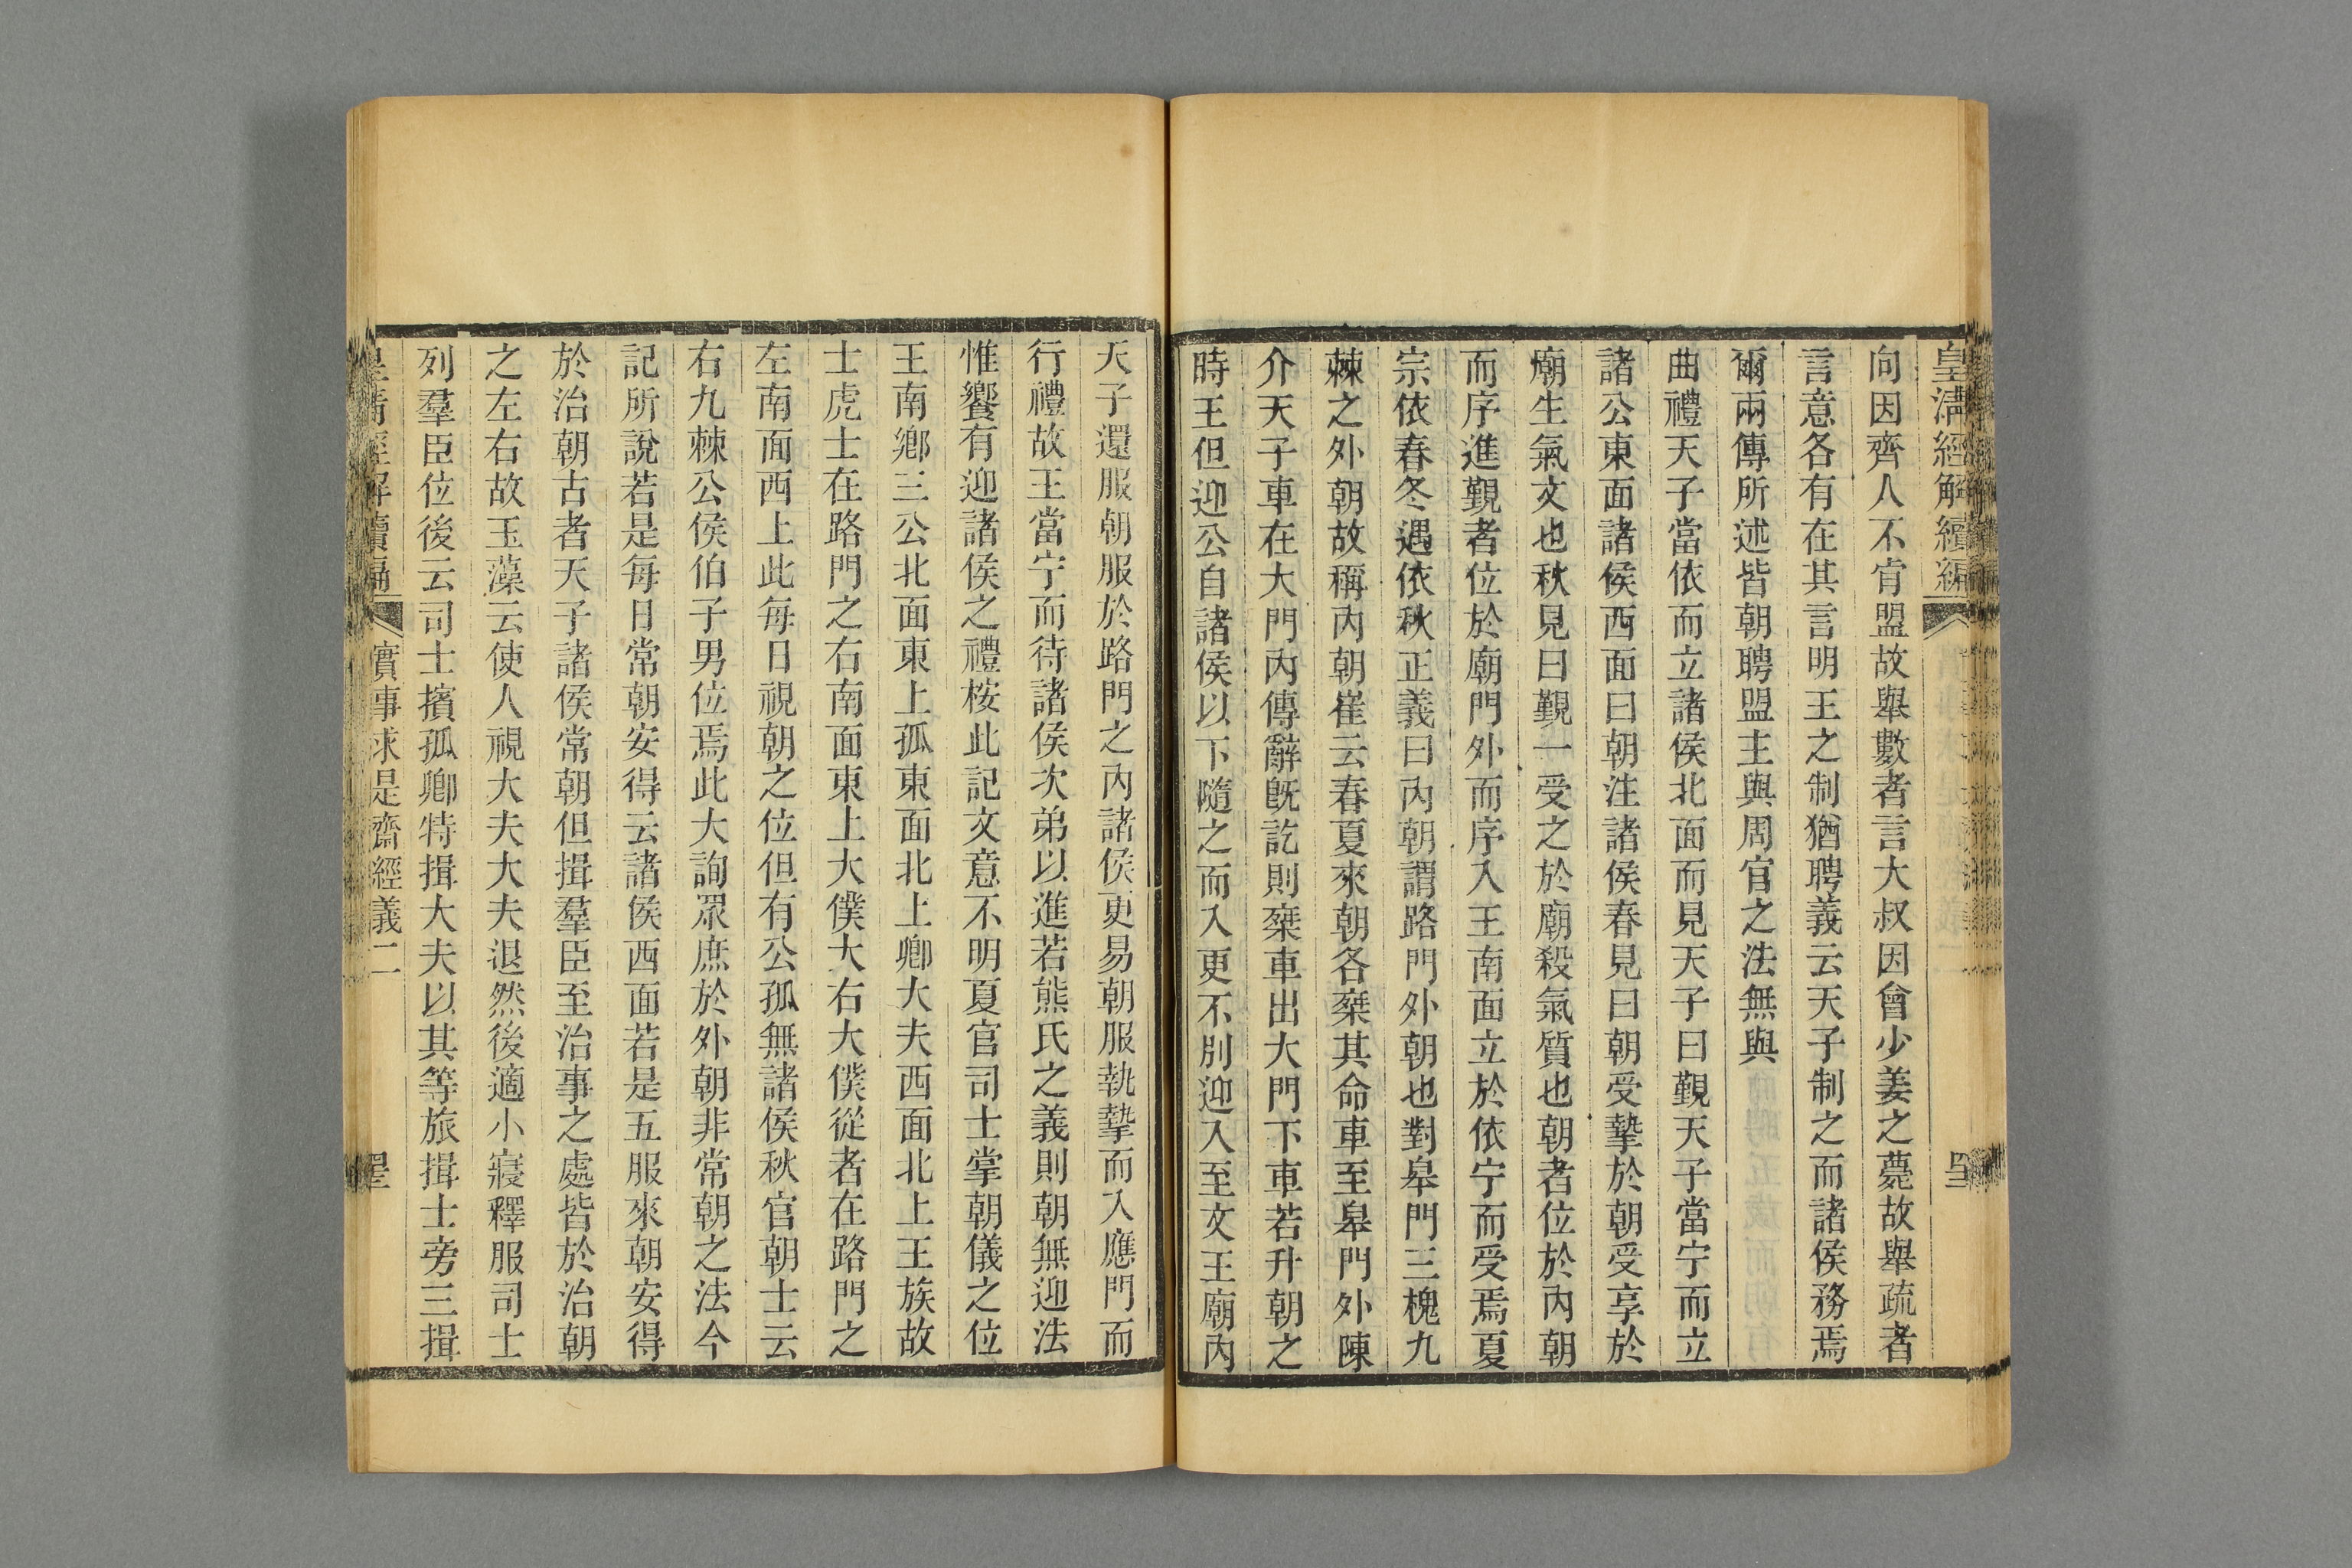 皇清經解續編
向因齊人不肯盟故舉數者言大叔因會少姜之薨故舉疏者
言意各有在其言明王之制猶聘義云天子制之而諸侯務焉
爾兩傳所述皆朝聘盟主與周官之法無與
曲禮天子當依而立諸侯北面而見天子曰覲天子當宁而立
諸公東面諸侯西面曰朝注諸侯春見曰朝受摯於朝受享於
廟生氣文也秋見曰覲一受之於廟殺氣質也朝者位於內朝
而序進覲者位於廟門外而序入王南面立於依宁而受焉夏
宗依春冬遇依秋正義曰內朝謂路門外朝也對皋門三槐九
棘之外朝故稱內朝崔云春夏來朝各乘其命車至皋門外陳
介天子車在大門內傳辭旣訖則乘車出大門下車若升朝之
時王但迎公自諸侯以下隨之而入更不別迎入至文王廟內
天子還服朝服於路門之內諸侯更易朝服執摯而入應門而
行禮故王當宁而待諸侯次弟以進若熊氏之義則朝無迎法
惟饗有迎諸侯之禮桉此記文意不明夏官司士掌朝儀之位
王南鄉三公北面東上孤東面北上卿大夫西面北上王族故
士虎士在路門之右南面東上大僕大右大僕從者在路門之
左南面西上此每日視朝之位但有公孤無諸侯秋官朝士云
右九棘公侯伯子男位焉此大詢眾庶於外朝非常朝之法今
記所說若是每日常朝安得云諸侯西面若是五服來朝安得
於治朝古者天子諸侯常朝但揖羣臣至治事之處皆於治朝
之左右故玉藻云使人視大夫大夫退然後適小寢釋服司士
列羣臣位後云司士擯孤卿特揖大夫以其等旅揖士旁三揖
皇清經解續編 實事求是齋經義二